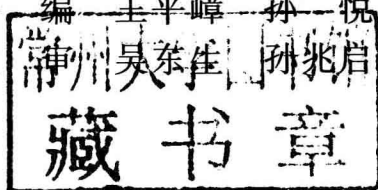 编 王平嶂 孙 悦
审 吴东生 孙兆启
常州
藏书章